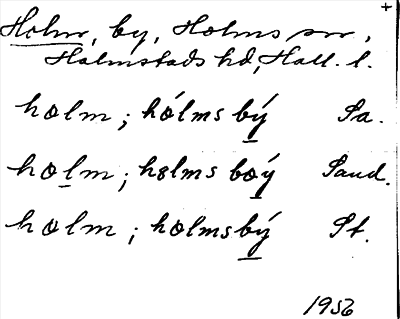 +
Holm, by, Holms sn,
Halmstads hd, Hall. l.
holm; hólms bý Sa.
holm; hɵlms boý Sand.
holm; holmsbý St.
1956